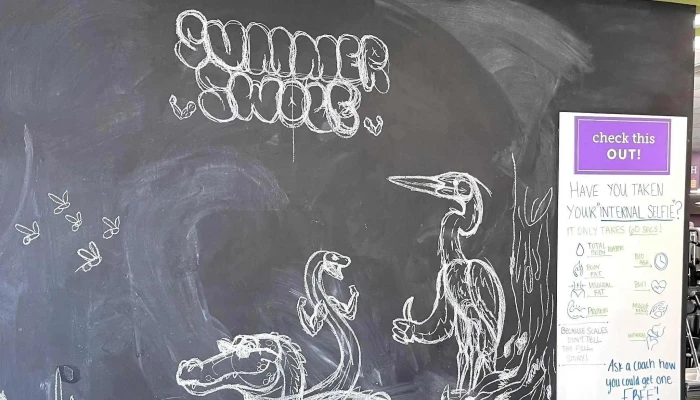 SUMMER
SWOLE
check this
OUT!
HAVE YOU TAKEN
YOUR "INTERNAL SELFIE"?
IT ONLY TAKES 60 SECS!
TOTAL
BODY WATER
BODY
FAT
VISCERAL
FAT
PROTEIN
BIO
AGE
BMI
MUSCLE
MASS
BECAUSE SCALES
DON'T TELL
THE FULL
STORY!
Ask a coach how
you could get one
FREE!